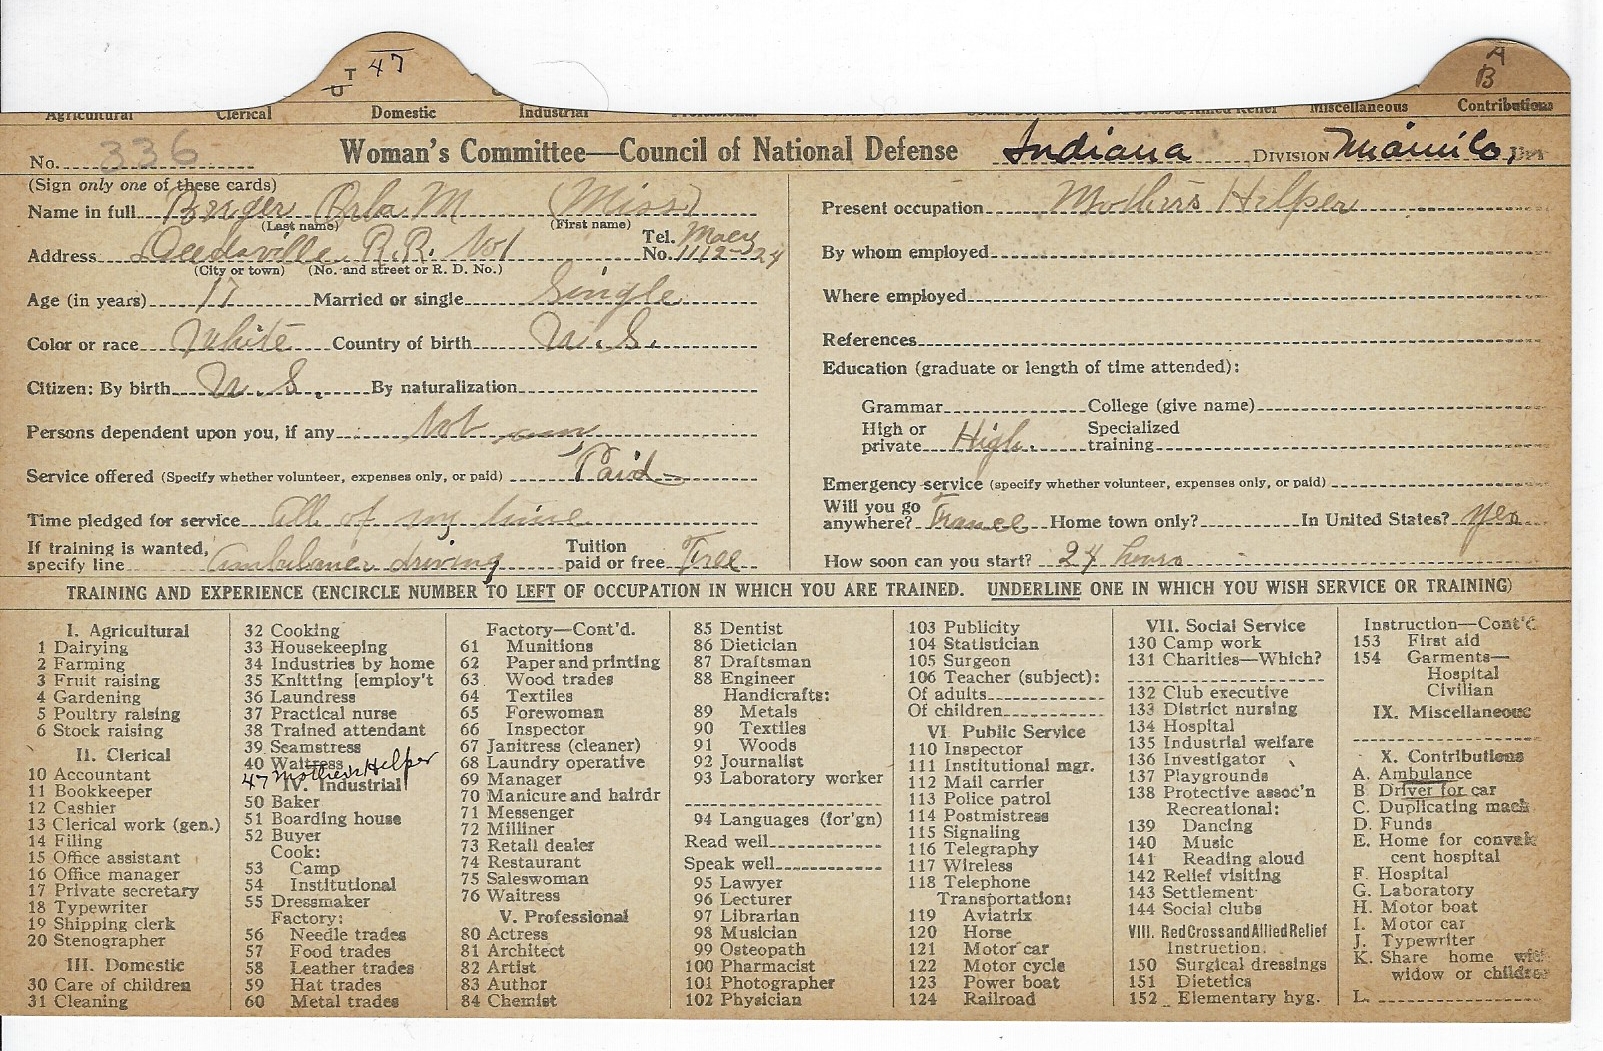 T 47
A
B
Agricultural Clerical Domestic Industrial Miscellaneous Contributions
No. 336 Woman's Committee—Council of National Defense Indiana DIVISION Miami Co.
(Sign only one of these cards)
Name in full Berger Orla M (Miss)
(Last name) (First name)
Address Deedsville R.R. No1 Tel. No. Macy 1112-24
(City or town) (No. and street or R. D. No.)
Age (in years) 17 Married or single Single
Color or race White Country of birth U.S.
Citizen: By birth U.S. By naturalization
Persons dependent upon you, if any Not any
Service offered (Specify whether volunteer, expenses only, or paid) Paid
Time pledged for service all of my time
If training is wanted, specify line Ambulance driving Tuition paid or free Free
Present occupation Mother's Helper
By whom employed
Where employed
References
Education (graduate or length of time attended):
Grammar College (give name)
High or private High. Specialized training
Emergency service (specify whether volunteer, expenses only, or paid)
Will you go anywhere? France Home town only? In United States? yes
How soon can you start? 24 hours
TRAINING AND EXPERIENCE (ENCIRCLE NUMBER TO LEFT OF OCCUPATION IN WHICH YOU ARE TRAINED. UNDERLINE ONE IN WHICH YOU WISH SERVICE OR TRAINING)
I. Agricultural
1 Dairying
2 Farming
3 Fruit raising
4 Gardening
5 Poultry raising
6 Stock raising
II. Clerical
10 Accountant
11 Bookkeeper
12 Cashier
13 Clerical work (gen.)
14 Filing
15 Office assistant
16 Office manager
17 Private secretary
18 Typewriter
19 Shipping clerk
20 Stenographer
III. Domestic
30 Care of children
31 Cleaning
32 Cooking
33 Housekeeping
34 Industries by home
35 Knitting [employ't
36 Laundress
37 Practical nurse
38 Trained attendant
39 Seamstress
40 Waitress
47 Mother's Helper
IV. Industrial
50 Baker
51 Boarding house
52 Buyer
Cook:
53 Camp
54 Institutional
55 Dressmaker
Factory:
56 Needle trades
57 Food trades
58 Leather trades
59 Hat trades
60 Metal trades
Factory—Cont'd.
61 Munitions
62 Paper and printing
63 Wood trades
64 Textiles
65 Forewoman
66 Inspector
67 Janitress (cleaner)
68 Laundry operative
69 Manager
70 Manicure and hairdr
71 Messenger
72 Milliner
73 Retail dealer
74 Restaurant
75 Saleswoman
76 Waitress
V. Professional
80 Actress
81 Architect
82 Artist
83 Author
84 Chemist
85 Dentist
86 Dietician
87 Draftsman
88 Engineer
Handicrafts:
89 Metals
90 Textiles
91 Woods
92 Journalist
93 Laboratory worker
94 Languages (for'gn)
Read well
Speak well
95 Lawyer
96 Lecturer
97 Librarian
98 Musician
99 Osteopath
100 Pharmacist
101 Photographer
102 Physician
103 Publicity
104 Statistician
105 Surgeon
106 Teacher (subject):
Of adults
Of children
VI Public Service
110 Inspector
111 Institutional mgr.
112 Mail carrier
113 Police patrol
114 Postmistress
115 Signaling
116 Telegraphy
117 Wireless
118 Telephone
Transportation:
119 Aviatrix
120 Horse
121 Motor car
122 Motor cycle
123 Power boat
124 Railroad
VII. Social Service
130 Camp work
131 Charities—Which?
132 Club executive
133 District nursing
134 Hospital
135 Industrial welfare
136 Investigator
137 Playgrounds
138 Protective assoc'n
Recreational:
139 Dancing
140 Music
141 Reading aloud
142 Relief visiting
143 Settlement
144 Social clubs
VIII. Red Cross and Allied Relief
Instruction.
150 Surgical dressings
151 Dietetics
152 Elementary hyg.
Instruction—Cont'd
153 First aid
154 Garments—
Hospital
Civilian
IX. Miscellaneous
X. Contributions
A. Ambulance
B Driver for car
C. Duplicating mach
D. Funds
E. Home for convales
cent hospital
F. Hospital
G. Laboratory
H. Motor boat
I. Motor car
J. Typewriter
K. Share home with
widow or children
L.